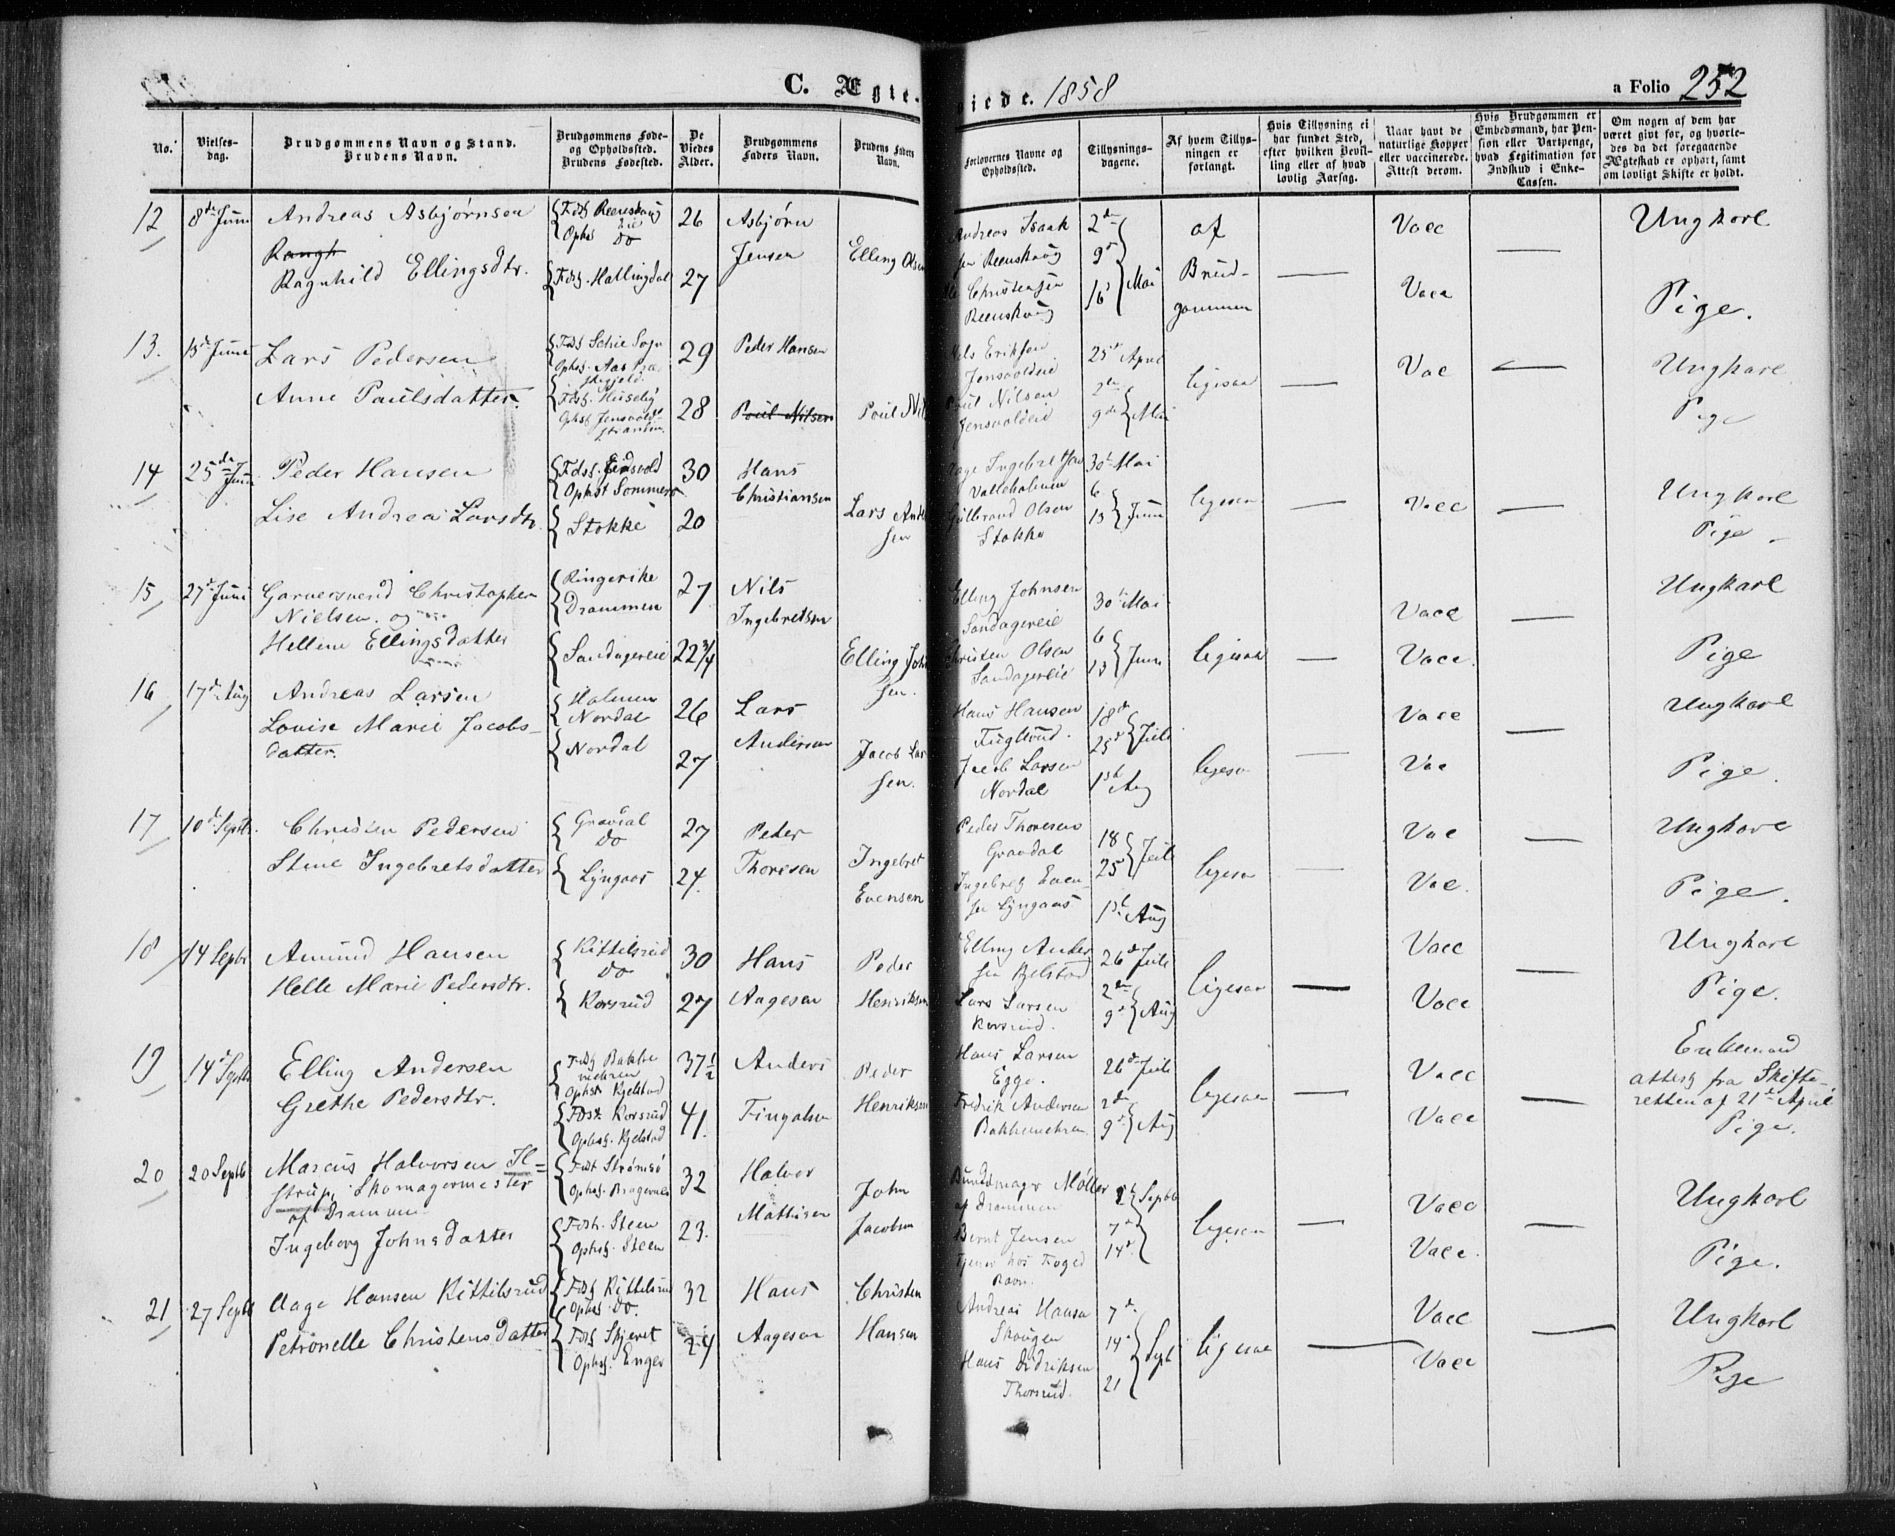 C. Ægteviede. 1858
a Folio 252
No.
Vielses-
dag.
Brudgommens Navn og Stand.
Brudens Navn.
Brudgommens Føde-
og Opholdssted.
Brudens Fødested.
De
Viedes
Alder.
Brudgommens
Faders Navn.
Brudens Faders
Navn.
Forlovernes Navne og
Opholdssted.
Tillysnings-
dagene.
Af hvem Tillys-
ningen er
forlangt.
Hvis Tillysning ei
har fundet Sted,
efter hvilken Bevil-
ling eller af hvad
lovlig Aarsag.
Naar havt de
naturlige Kopper
eller vaccinerede.
Attest derom.
Hvis Brudgommen er
Embedsmand, har Pen-
sion eller Vartpenge,
hvad Legitimation for
Indskud i Enke-
Cassen.
Om nogen af dem har
været givt før, og hvorle-
des da det foregaaende
Ægteskab er ophørt, samt
om lovligt Skifte er holdt.
12 8de Juni Andreas Asbjørnsen Fds Reenskaug Eie Ophs do 26 Asbjørn Jensen
Rangh
Ragnhild Ellingsdtr. Fdss. Hallingdal 27 Elling Olsen
Andreas Isaak
sen Reenskoug
Christensen
Reenskoug
2de 9de 16 Mai
af Brudgommen
Vacc Ungkarl
Vacc Pige.
13. Juni Lars Pedersen 29 Peder Hansen
Anne Paulsdatter. 28 Poul Nilsen Poul Nil
Nils Eriksen
Jensvoldeie
Poul Nilsen
Jensvoldeie
25de April
2de 9de Mai
ligesaa
Vac Ungkarl
Pige
14 25de Juni Peder Hansen Fdss. Eidsvold Ophst Sommero 30 Hans Christiansen
Lise Andrea Larsdtr. Stokke 20 Lars Andersen
Aage Ingebretsen
Valleholmen
Gulbrand Olsen
Stokke
30te Mai
6 13 Juni
ligesaa
Vacc Ungkarl
Pige
15 27de Juni Garversvend Christopher
Nielsen og
Hellene Ellingsdatter
Ringerike
Drammen 27 Nils Ingebretsen
Sandagereie 22 3/4 Elling Johnsen.
Elling Johnsen
Sandagereie
Christen Olsen
Sandagereie
30te Mai
6 13 Juni
ligesaa
Vacc Ungkarl
Vacc. Pige
16 17de Aug Andreas Larsen Holmen Nordal 26 Lars Andersen
Lovise Marie Jacobs-
datter. Nordal 27 Jacob Larsen.
Hans Hansen
Fuglerud.
Jacob Larsen
Nordal
18de 25de Juli
1ste Aug
ligesa
Vacc Ungkarl
Vac Pige.
17 10de Septbr. Christen Pedersen Gravdal do 27 Peder Thoresen
Stine Ingebretsdatter Lyngaas 24. Ingebret Evensen
Peder Thoresen
Gravdal
Ingebret Even-
sen Lyngaas
18 25 Juli
1ste Aug
ligesa
Vac Ungkarl
Vac. Pige.
18 14 Septbr Amund Hansen Kittilsrud do 30 Hans Aagesen
Helle Marie Pedersdtr. Korsrud 27 Peder Henriksen
Elling Ander
sen Kjelstad
Lars Larsen
Korsrud.
26de Juli
2den 9de Aug
ligesaa
Vacc Ungkarl
Vacc Pige.
19 14de Septbr Elling Andersen Ophst Kjelstad 37 1/2 Anders Fingalsen
Grethe Pedersdtr. Fdst Korsrud Ophs. Kjelstad 41. Peder Henriksen
Hans Larsen
Egge.
Fredrik Andersen
26de Juli
2de 9de Aug
ligesaa
Vacc Enkemand
attest fra Skifte-
retten af 21de April
Vacc Pige.
20 20 Septb Marcus Halvorsen El=
strup, Skomagermester
af Drammen
Fdst Strømsø
Ophs. Bragernes 32 Halvor Mathisen
Ingeborg Johnsdatter Fdst. Steen Ophs. Steen 23. John Jacobsen
Buntmager Møller
af Drammen
Bernt Jensen
tjener hos Foged
Ravn
Septb
7de
14de
ligesaa
Vacc Ungkarl
Vacc. Pige.
21 27 Septb Aage Hansen Kittilsrud Fds Kittilsrud Ophs. do. 32 Hans Aagesen
Petronelle Christensdatter Fds Skjeret Ophs. Enger 24 Christen Hansen
Andreas Hansen
Skougen
Hans Didriksen
Thorsrud.
7de
14de
21
Septb
ligesaa
Vacc Ungkarl
Vacc Pige